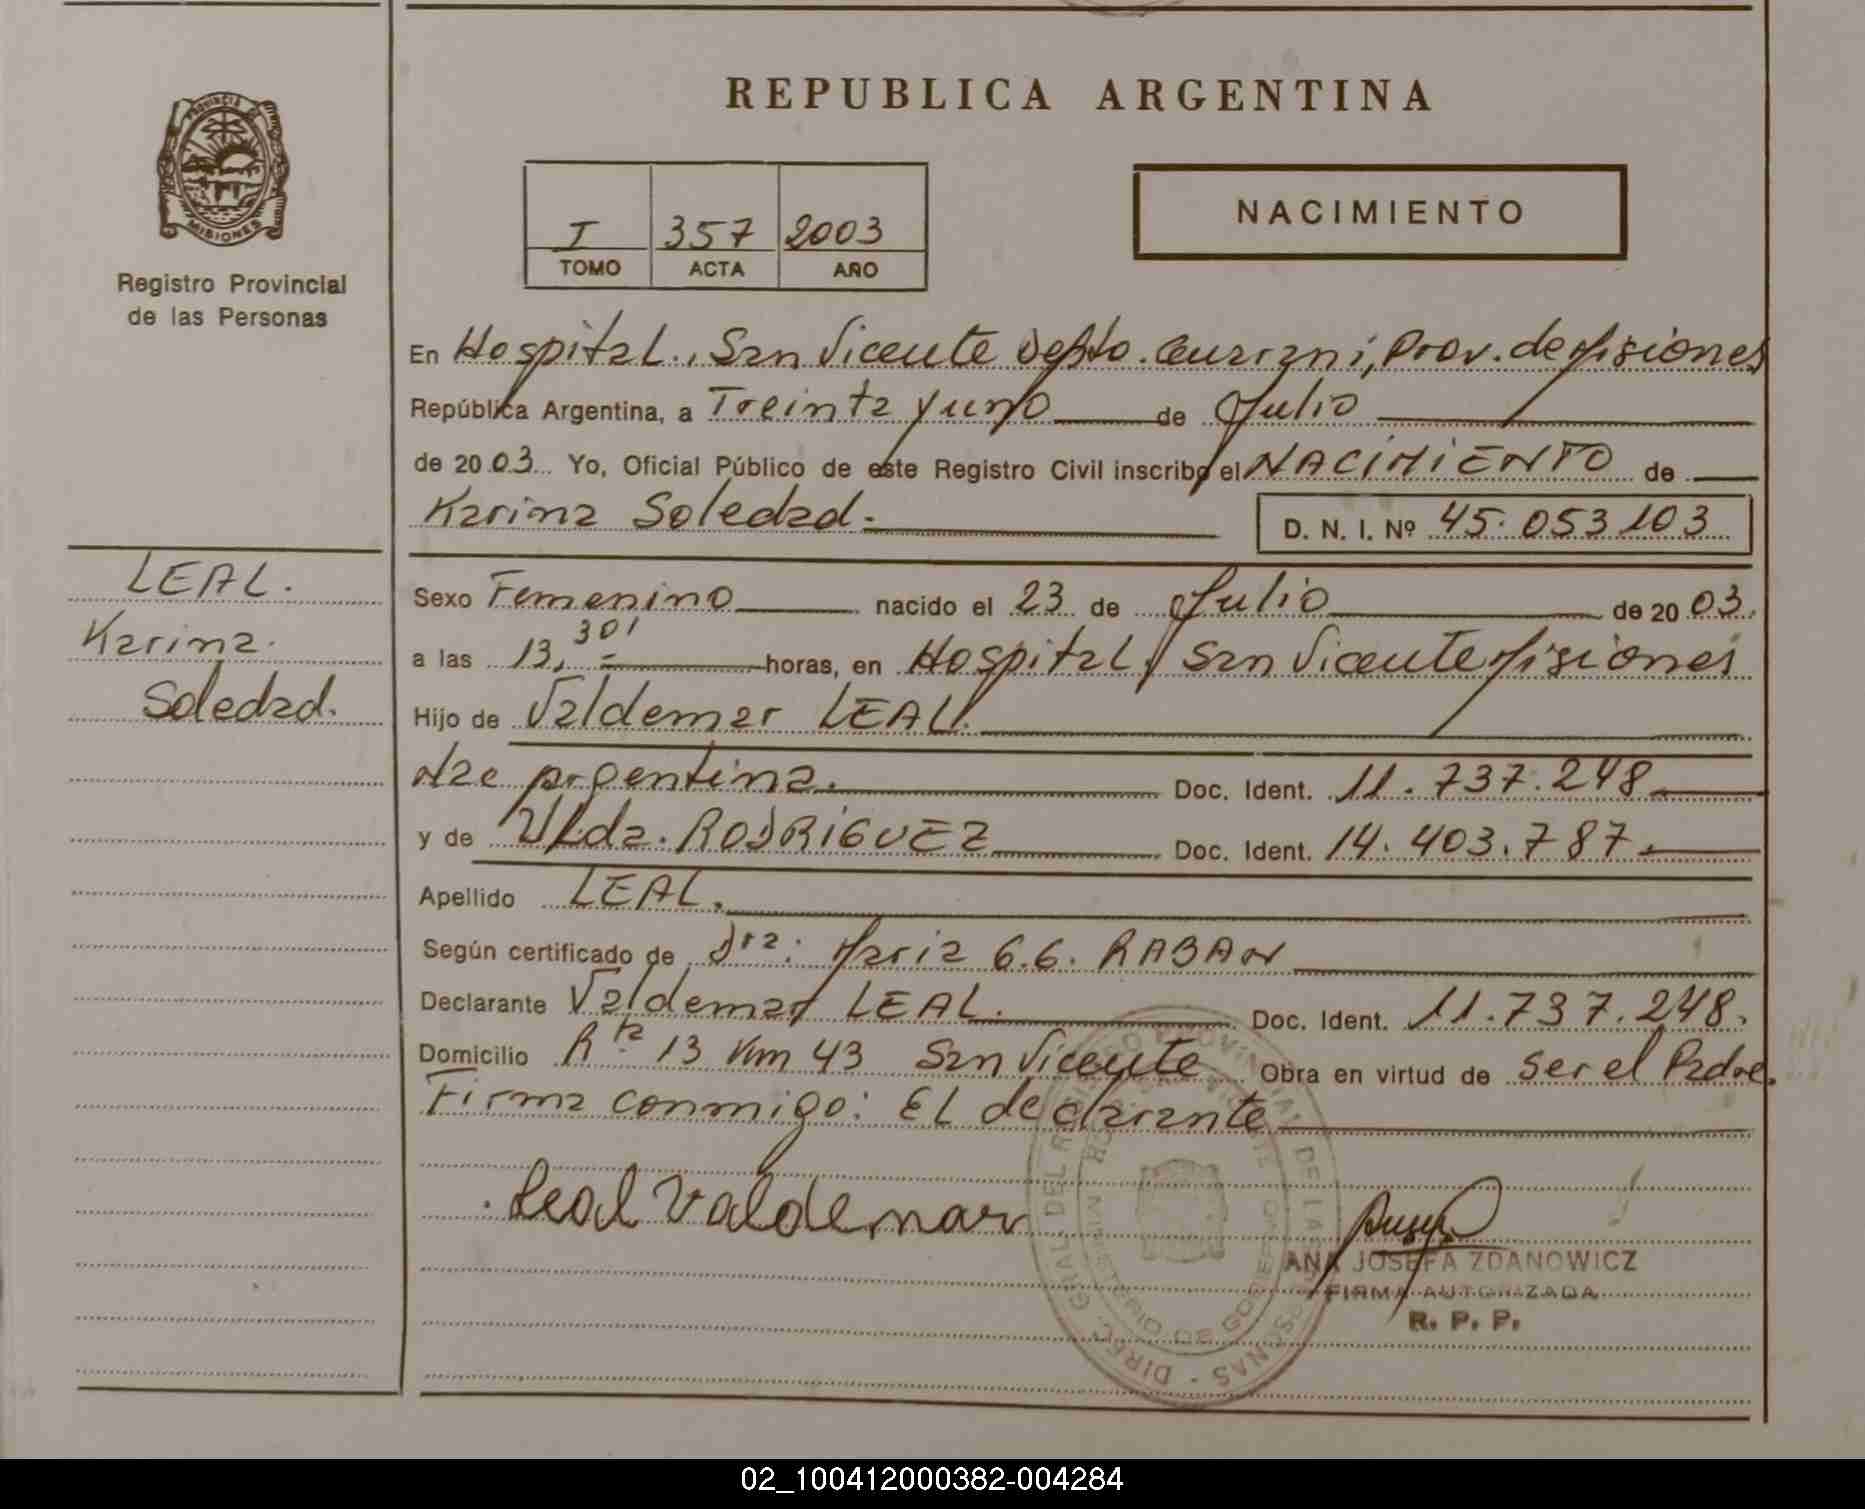 REPUBLICA ARGENTINA
PROVINCIA DE MISIONES
Registro Provincial
de las Personas
I 357 2003
TOMO ACTA AÑO
NACIMIENTO
En Hospital., San Vicente Depto. Guarani, Prov. de Misiones
República Argentina, a Treinta y uno de Julio
de 2003 Yo, Oficial Público de este Registro Civil inscribo el NACIMIENTO de
Karina Soledad.
D. N. I. Nº 45.053.103
LEAL.
Karina.
Soledad.
Sexo Femenino nacido el 23 de Julio de 2003.
a las 13,30' horas, en Hospital, San Vicente Misiones
Hijo de Valdemar LEAL.
Nac argentina. Doc. Ident. 11.737.248
y de Ilda. RODRIGUEZ Doc. Ident. 14.403.787.
Apellido LEAL.
Según certificado de Dra: Maria G.G. RABAN
Declarante Valdemar LEAL. Doc. Ident. 11.737.248.
Domicilio Rta 13 Km 43 San Vicente Obra en virtud de ser el Padre.
Firma conmigo: EL declarante
Leal Valdemar
DIREC. GRAL. DEL REGISTRO PROVINCIAL DE LAS PERSONAS
MINISTERIO DE GOBIERNO
ANA JOSEFA ZDANOWICZ
FIRMA AUTORIZADA
R. P. P.
02_100412000382-004284